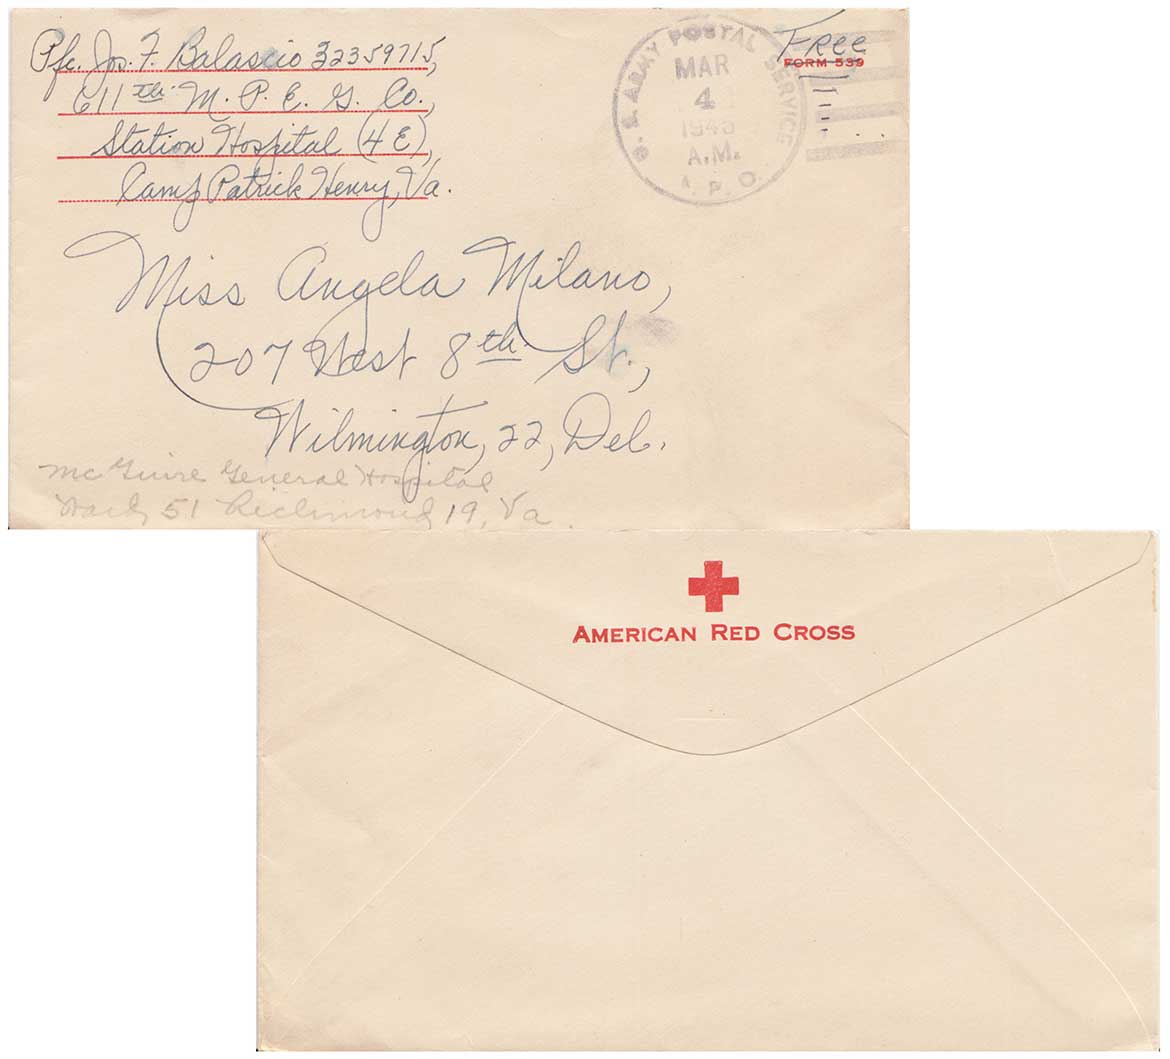 Pfc. Jos. F. Balascio 32359715,
611th M. P. E. G. Co.,
Station Hospital (4 E),
Camp Patrick Henry, Va.
Free
FORM 539
U. S. ARMY POSTAL SERVICE
MAR
4
1945
A.M.
A. P. O.
Miss Angela Milano,
207 West 8th St.,
Wilmington, 22, Del.
Mc Guire General Hospital
Ward 51 Richmond 19, Va.
AMERICAN RED CROSS